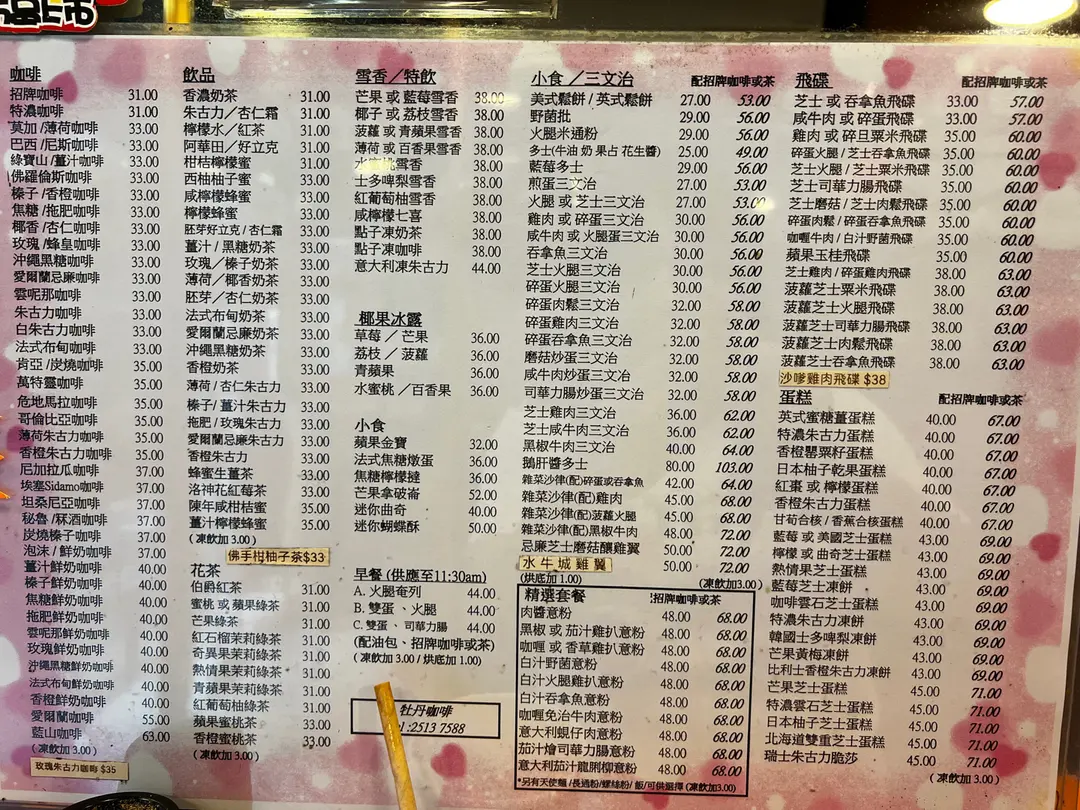 咖啡
招牌咖啡 31.00
特濃咖啡 31.00
莫加 /薄荷咖啡 33.00
巴西 /尼斯咖啡 33.00
綠寶山 /薑汁咖啡 33.00
佛羅倫斯咖啡 33.00
榛子 /香橙咖啡 33.00
焦糖 /拖肥咖啡 33.00
椰香 /杏仁咖啡 33.00
玫瑰 /蜂皇咖啡 33.00
沖繩黑糖咖啡 33.00
愛爾蘭忌廉咖啡 33.00
雲呢那咖啡 33.00
朱古力咖啡 33.00
白朱古力咖啡 33.00
法式布甸咖啡 33.00
肯亞 /炭燒咖啡 35.00
萬特靈咖啡 35.00
危地馬拉咖啡 35.00
哥倫比亞咖啡 35.00
薄荷朱古力咖啡 35.00
香橙朱古力咖啡 35.00
尼加拉瓜咖啡 37.00
埃塞Sidamo咖啡 37.00
坦桑尼亞咖啡 37.00
秘魯 /冧酒咖啡 37.00
炭燒榛子咖啡 37.00
泡沫 / 鮮奶咖啡 37.00
薑汁鮮奶咖啡 40.00
榛子鮮奶咖啡 40.00
焦糖鮮奶咖啡 40.00
拖肥鮮奶咖啡 40.00
雲呢那鮮奶咖啡 40.00
玫瑰鮮奶咖啡 40.00
沖繩黑糖鮮奶咖啡 40.00
法式布甸鮮奶咖啡 40.00
香橙鮮奶咖啡 40.00
愛爾蘭咖啡 55.00
藍山咖啡 63.00
( 凍飲加 3.00 )
玫瑰朱古力咖啡 $35
飲品
香濃奶茶 31.00
朱古力／杏仁霜 31.00
檸檬水／紅茶 31.00
阿華田／好立克 31.00
柑桔檸檬蜜 31.00
西柚柚子蜜 31.00
咸檸檬蜂蜜 33.00
檸檬蜂蜜 33.00
胚芽好立克 / 杏仁霜 33.00
薑汁 / 黑糖奶茶 33.00
玫瑰／榛子奶茶 33.00
薄荷／椰香奶茶 33.00
胚芽／杏仁奶茶 33.00
法式布甸奶茶 33.00
愛爾蘭忌廉奶茶 33.00
沖繩黑糖奶茶 33.00
香橙奶茶 33.00
薄荷 / 杏仁朱古力 33.00
榛子/ 薑汁朱古力 33.00
拖肥 / 玫瑰朱古力 33.00
愛爾蘭忌廉朱古力 33.00
香橙朱古力 33.00
蜂蜜生薑茶 33.00
洛神花紅莓茶 33.00
陳年咸柑桔蜜 35.00
薑汁檸檬蜂蜜 35.00
( 凍飲加 3.00 )
佛手柑柚子茶$33
花茶
伯爵紅茶 31.00
蜜桃 或 蘋果綠茶 31.00
芒果綠茶 31.00
紅石榴茉莉綠茶 31.00
奇異果茉莉綠茶 31.00
熱情果茉莉綠茶 31.00
青蘋果茉莉綠茶 31.00
紅葡萄柚綠茶 31.00
蘋果蜜桃茶 33.00
香橙蜜桃茶 33.00
(凍飲加 3.00 )
雪香／特飲
芒果 或 藍莓雪香 38.00
椰子 或 荔枝雪香 38.00
菠蘿 或 青蘋果雪香 38.00
薄荷 或 百香果雪香 38.00
水蜜桃雪香 38.00
士多啤梨雪香 38.00
紅葡萄柚雪香 38.00
咸檸檬七喜 38.00
點子凍奶茶 38.00
點子凍咖啡 38.00
意大利凍朱古力 44.00
椰果冰露
草莓 ／ 芒果 36.00
荔枝 ／ 菠蘿 36.00
青蘋果 36.00
水蜜桃 ／百香果 36.00
小食
蘋果金寶 32.00
法式焦糖燉蛋 36.00
焦糖檸檬撻 36.00
芒果拿破崙 52.00
迷你曲奇 40.00
迷你蝴蝶酥 50.00
早餐 (供應至11:30am)
A. 火腿奄列 44.00
B. 雙蛋 、火腿 44.00
C. 雙蛋 、 司華力腸 44.00
(配油包、招牌咖啡或茶)
( 凍飲加 3.00 / 烘底加 1.00)
牡丹咖啡
:2513 7588
小食 ／三文治 配招牌咖啡或茶
美式鬆餅 / 英式鬆餅 27.00 53.00
野菌批 29.00 56.00
火腿米通粉 29.00 56.00
多士(牛油 奶 果占 花生醬) 25.00 49.00
藍莓多士 29.00 56.00
煎蛋三文治 27.00 53.00
火腿 或 芝士三文治 27.00 53.00
雞肉 或 碎蛋三文治 30.00 56.00
咸牛肉 或 火腿蛋三文治 30.00 56.00
吞拿魚三文治 30.00 56.00
芝士火腿三文治 30.00 56.00
碎蛋火腿三文治 30.00 56.00
碎蛋肉鬆三文治 32.00 58.00
碎蛋雞肉三文治 32.00 58.00
碎蛋吞拿魚三文治 32.00 58.00
磨菇炒蛋三文治 32.00 58.00
咸牛肉炒蛋三文治 32.00 58.00
司華力腸炒蛋三文治 32.00 58.00
芝士雞肉三文治 36.00 62.00
芝士咸牛肉三文治 36.00 62.00
黑椒牛肉三文治 40.00 64.00
鵝肝醬多士 80.00 103.00
雜菜沙律(配)碎蛋或吞拿魚 42.00 64.00
雜菜沙律(配)雞肉 45.00 68.00
雜菜沙律(配)菠蘿火腿 45.00 68.00
雜菜沙律(配)黑椒牛肉 48.00 72.00
忌廉芝士磨菇釀雞翼 50.00 72.00
水牛城雞翼 50.00 72.00
(烘底加 1.00) (凍飲加3.00 )
精選套餐 招牌咖啡或茶
肉醬意粉 48.00 68.00
黑椒 或 茄汁雞扒意粉 48.00 68.00
咖喱 或 香草雞扒意粉 48.00 68.00
白汁野菌意粉 48.00 68.00
白汁火腿雞扒意粉 48.00 68.00
白汁吞拿魚意粉 48.00 68.00
咖喱免治牛肉意粉 48.00 68.00
意大利蜆仔肉意粉 48.00 68.00
茄汁燴司華力腸意粉 48.00 68.00
意大利茄汁龍脷柳意粉 48.00 68.00
*另有天使麵 /長通粉/螺絲粉/ 飯/可供選擇 (凍飲加3.00)
飛碟 配招牌咖啡或茶
芝士 或 吞拿魚飛碟 33.00 57.00
咸牛肉 或 碎蛋飛碟 33.00 57.00
雞肉 或 碎旦粟米飛碟 35.00 60.00
碎蛋火腿 / 芝士吞拿魚飛碟 35.00 60.00
芝士火腿 / 芝士粟米飛碟 35.00 60.00
芝士司華力腸飛碟 35.00 60.00
芝士磨菇 / 芝士肉鬆飛碟 35.00 60.00
碎蛋肉鬆 / 碎蛋吞拿魚飛碟 35.00 60.00
咖喱牛肉 / 白汁野菌飛碟 35.00 60.00
蘋果玉桂飛碟 35.00 60.00
芝士雞肉 / 碎蛋雞肉飛碟 38.00 63.00
菠蘿芝士粟米飛碟 38.00 63.00
菠蘿芝士火腿飛碟 38.00 63.00
菠蘿芝士司華力腸飛碟 38.00 63.00
菠蘿芝士肉鬆飛碟 38.00 63.00
菠蘿芝士吞拿魚飛碟 38.00 63.00
沙嗲雞肉飛碟 $38
蛋糕 配招牌咖啡或茶
英式蜜糖薑蛋糕 40.00 67.00
特濃朱古力蛋糕 40.00 67.00
香橙罌粟籽蛋糕 40.00 67.00
日本柚子乾果蛋糕 40.00 67.00
紅棗 或 檸檬蛋糕 40.00 67.00
香橙朱古力蛋糕 40.00 67.00
甘荀合核 / 香蕉合核蛋糕 40.00 67.00
藍莓 或 美國芝士蛋糕 43.00 69.00
檸檬 或 曲奇芝士蛋糕 43.00 69.00
熱情果芝士蛋糕 43.00 69.00
藍莓芝士凍餅 43.00 69.00
咖啡雲石芝士蛋糕 43.00 69.00
特濃朱古力凍餅 43.00 69.00
韓國士多啤梨凍餅 43.00 69.00
芒果黃梅凍餅 43.00 69.00
比利士香橙朱古力凍餅 43.00 69.00
芒果芝士蛋糕 45.00 71.00
特濃雲石芝士蛋糕 45.00 71.00
日本柚子芝士蛋糕 45.00 71.00
北海道雙重芝士蛋糕 45.00 71.00
瑞士朱古力脆莎 45.00 71.00
( 凍飲加 3.00 )